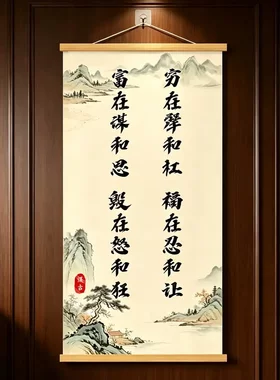 穷在犟和杠 福在忍和让
富在谋和思 毁在怒和狂